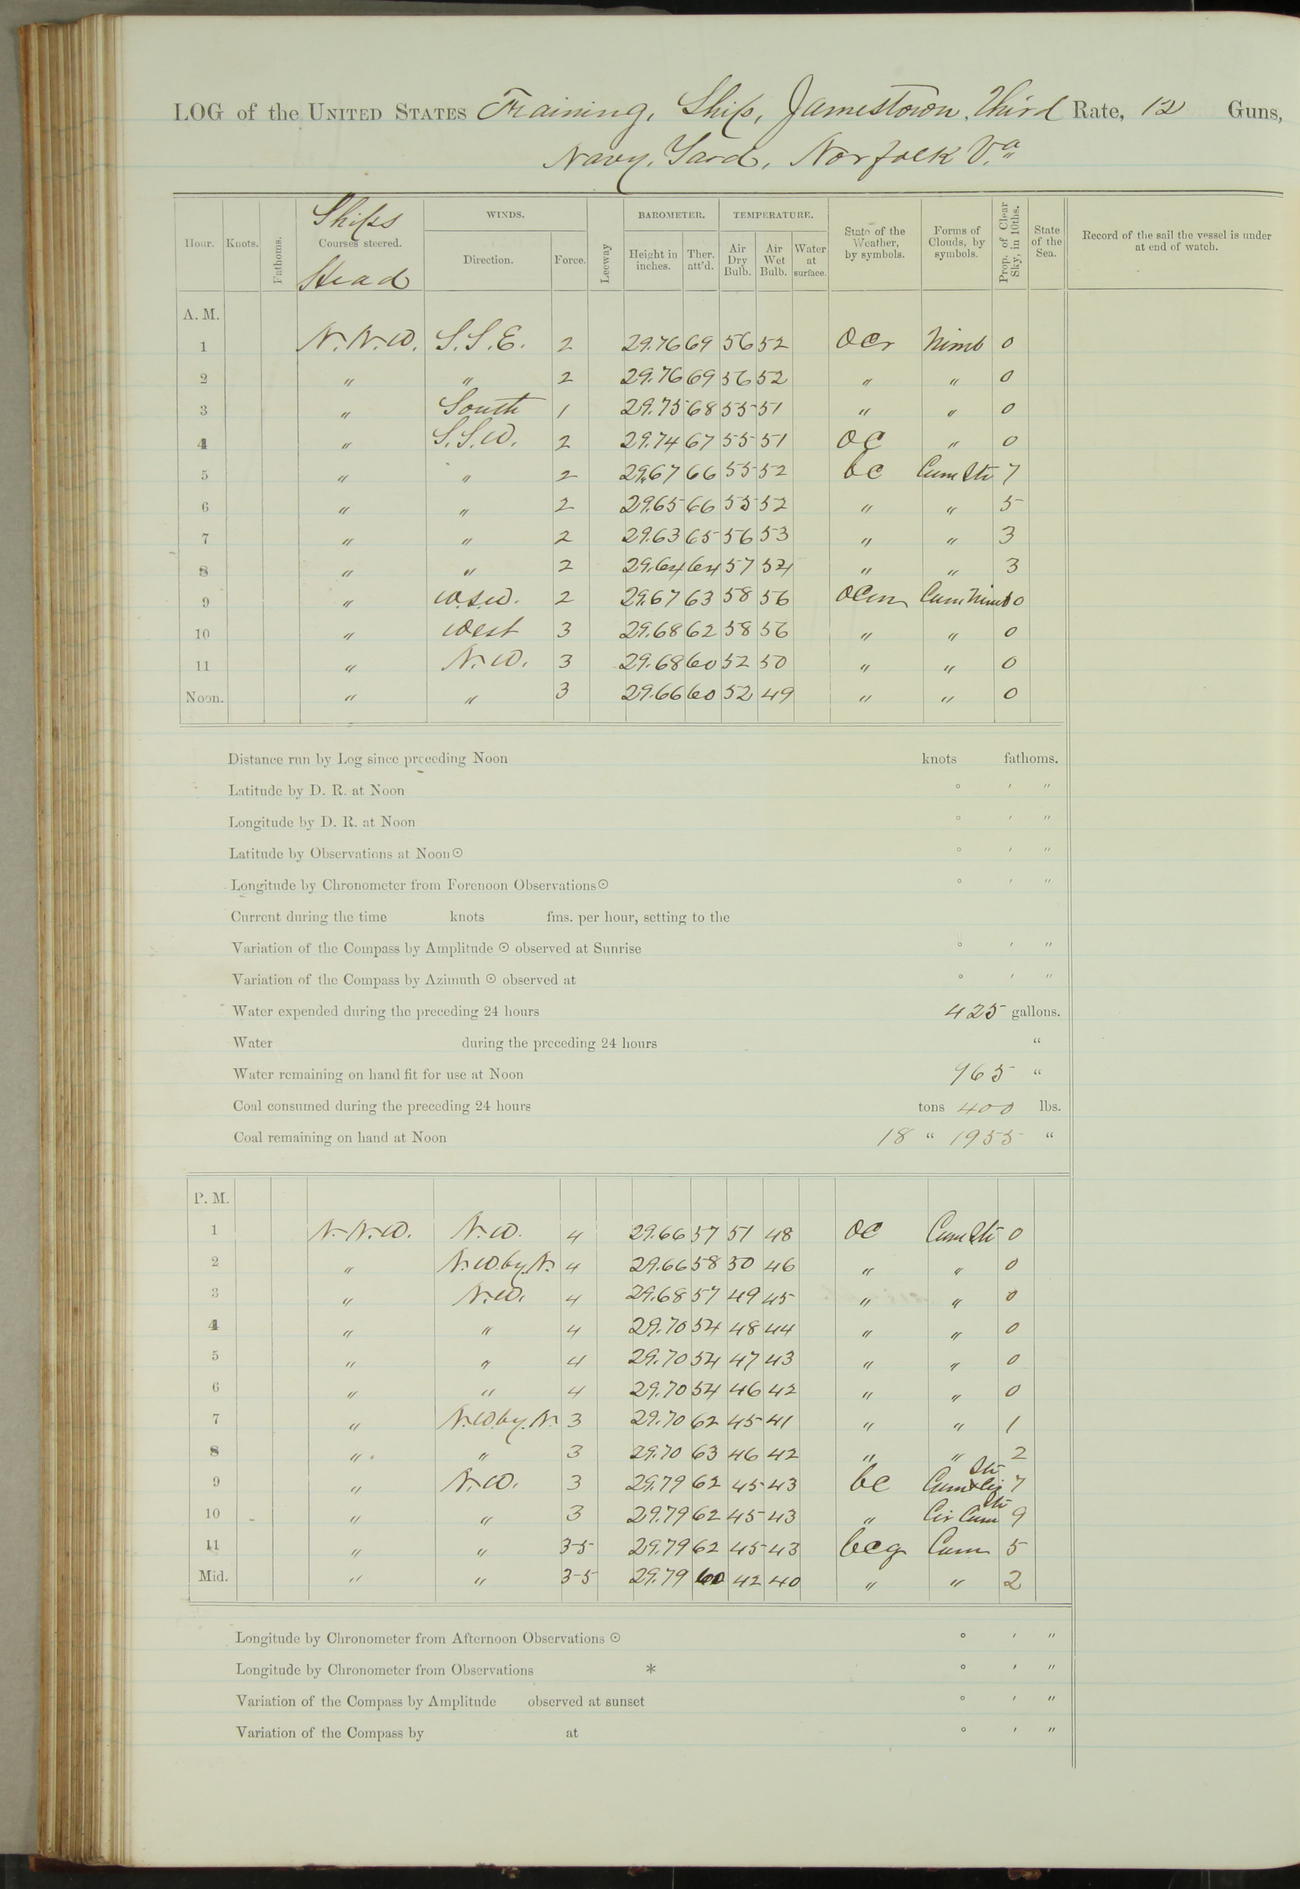 LOG of the UNITED STATES Training, Ship, Jamestown, Third Rate, 12 Guns,
Navy, Yard, Norfolk Va
Hour. Knots. Fathoms. Ships Courses steered. Head WINDS. Direction. Force. Leeway BAROMETER. Height in inches. Ther. att'd. TEMPERATURE. Air Dry Bulb. Air Wet Bulb. Water at surface. State of the Weather, by symbols. Forms of Clouds, by symbols. Prop. of Clear Sky, in 10ths. State of the Sea. Record of the sail the vessel is under at end of watch.
A. M.
1 N.N.W. S.S.E. 2 29.76 69 56 52 ocr Nimb 0
2 " " 2 29.76 69 56 52 " " 0
3 " South 1 29.75 68 55 51 " " 0
4 " S.S.W. 2 29.74 67 55 51 oc " 0
5 " " 2 29.67 66 55 52 bc Cum Str 7
6 " " 2 29.65 66 55 52 " " 5
7 " " 2 29.63 65 56 53 " " 3
8 " " 2 29.64 64 57 54 " " 3
9 " W.S.W. 2 29.67 63 58 56 ocm Cum Nimb 0
10 " West 3 29.68 62 58 56 " " 0
11 " N.W. 3 29.68 60 52 50 " " 0
Noon. " " 3 29.66 60 52 49 " " 0
Distance run by Log since preceding Noon knots fathoms.
Latitude by D. R. at Noon ° ′ ″
Longitude by D. R. at Noon ° ′ ″
Latitude by Observations at Noon ☉ ° ′ ″
Longitude by Chronometer from Forenoon Observations ☉ ° ′ ″
Current during the time knots fms. per hour, setting to the
Variation of the Compass by Amplitude ☉ observed at Sunrise ° ′ ″
Variation of the Compass by Azimuth ☉ observed at ° ′ ″
Water expended during the preceding 24 hours 425 gallons.
Water during the preceding 24 hours "
Water remaining on hand fit for use at Noon 965 "
Coal consumed during the preceding 24 hours tons 400 lbs.
Coal remaining on hand at Noon 18 " 1955 "
P. M.
1 N.N.W. N.W. 4 29.66 57 51 48 oc Cum Str 0
2 " N.W.by.N. 4 29.66 58 50 46 " " 0
3 " N.W. 4 29.68 57 49 45 " " 0
4 " " 4 29.70 54 48 44 " " 0
5 " " 4 29.70 54 47 43 " " 0
6 " " 4 29.70 54 46 42 " " 0
7 " N.W.by.N. 3 29.70 62 45 41 " " 1
8 " " 3 29.70 63 46 42 " " 2
9 " N.W. 3 29.79 62 45 43 bc Cum & Cir Str 7
10 " " 3 29.79 62 45 43 " Cir Cum Str 9
11 " " 3-5 29.79 62 45 43 bcq Cum 5
Mid. " " 3-5 29.79 60 42 40 " " 2
Longitude by Chronometer from Afternoon Observations ☉ ° ′ ″
Longitude by Chronometer from Observations * ° ′ ″
Variation of the Compass by Amplitude observed at sunset ° ′ ″
Variation of the Compass by at ° ′ ″